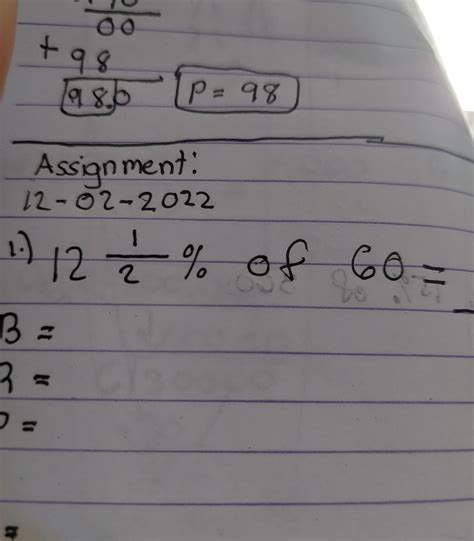 00
+ 98
98.0 P = 98
Assignment:
12-02-2022
1.) 12 1/2 % of 60 =
B =
R =
P =
=